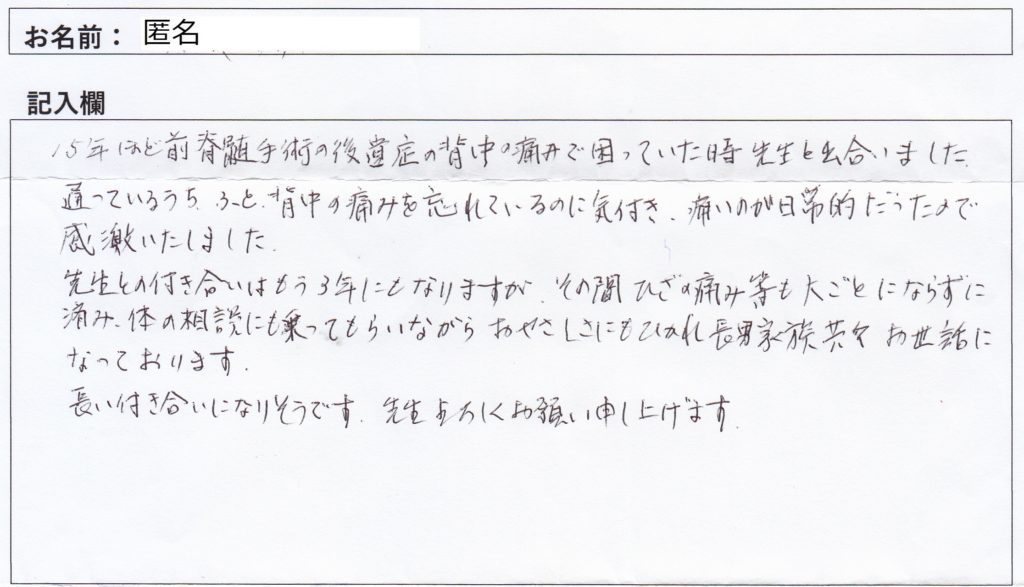 お名前： 匿名
記入欄
15年ほど前脊髄手術の後遺症の背中の痛みで困っていた時 先生と出合いました.
通っているうち、ふと、背中の痛みを忘れているのに気付き、痛いのが日常的だったので
感激いたしました.
先生との付き合いはもう3年にもなりますが、その間 ひざの痛み等も大ごとにならずに
済み、体の相談にも乗ってもらいながら おやさしさにもひかれ長男家族共々 お世話に
なっております.
長い付き合いになりそうです. 先生よろしくお願い申し上げます.